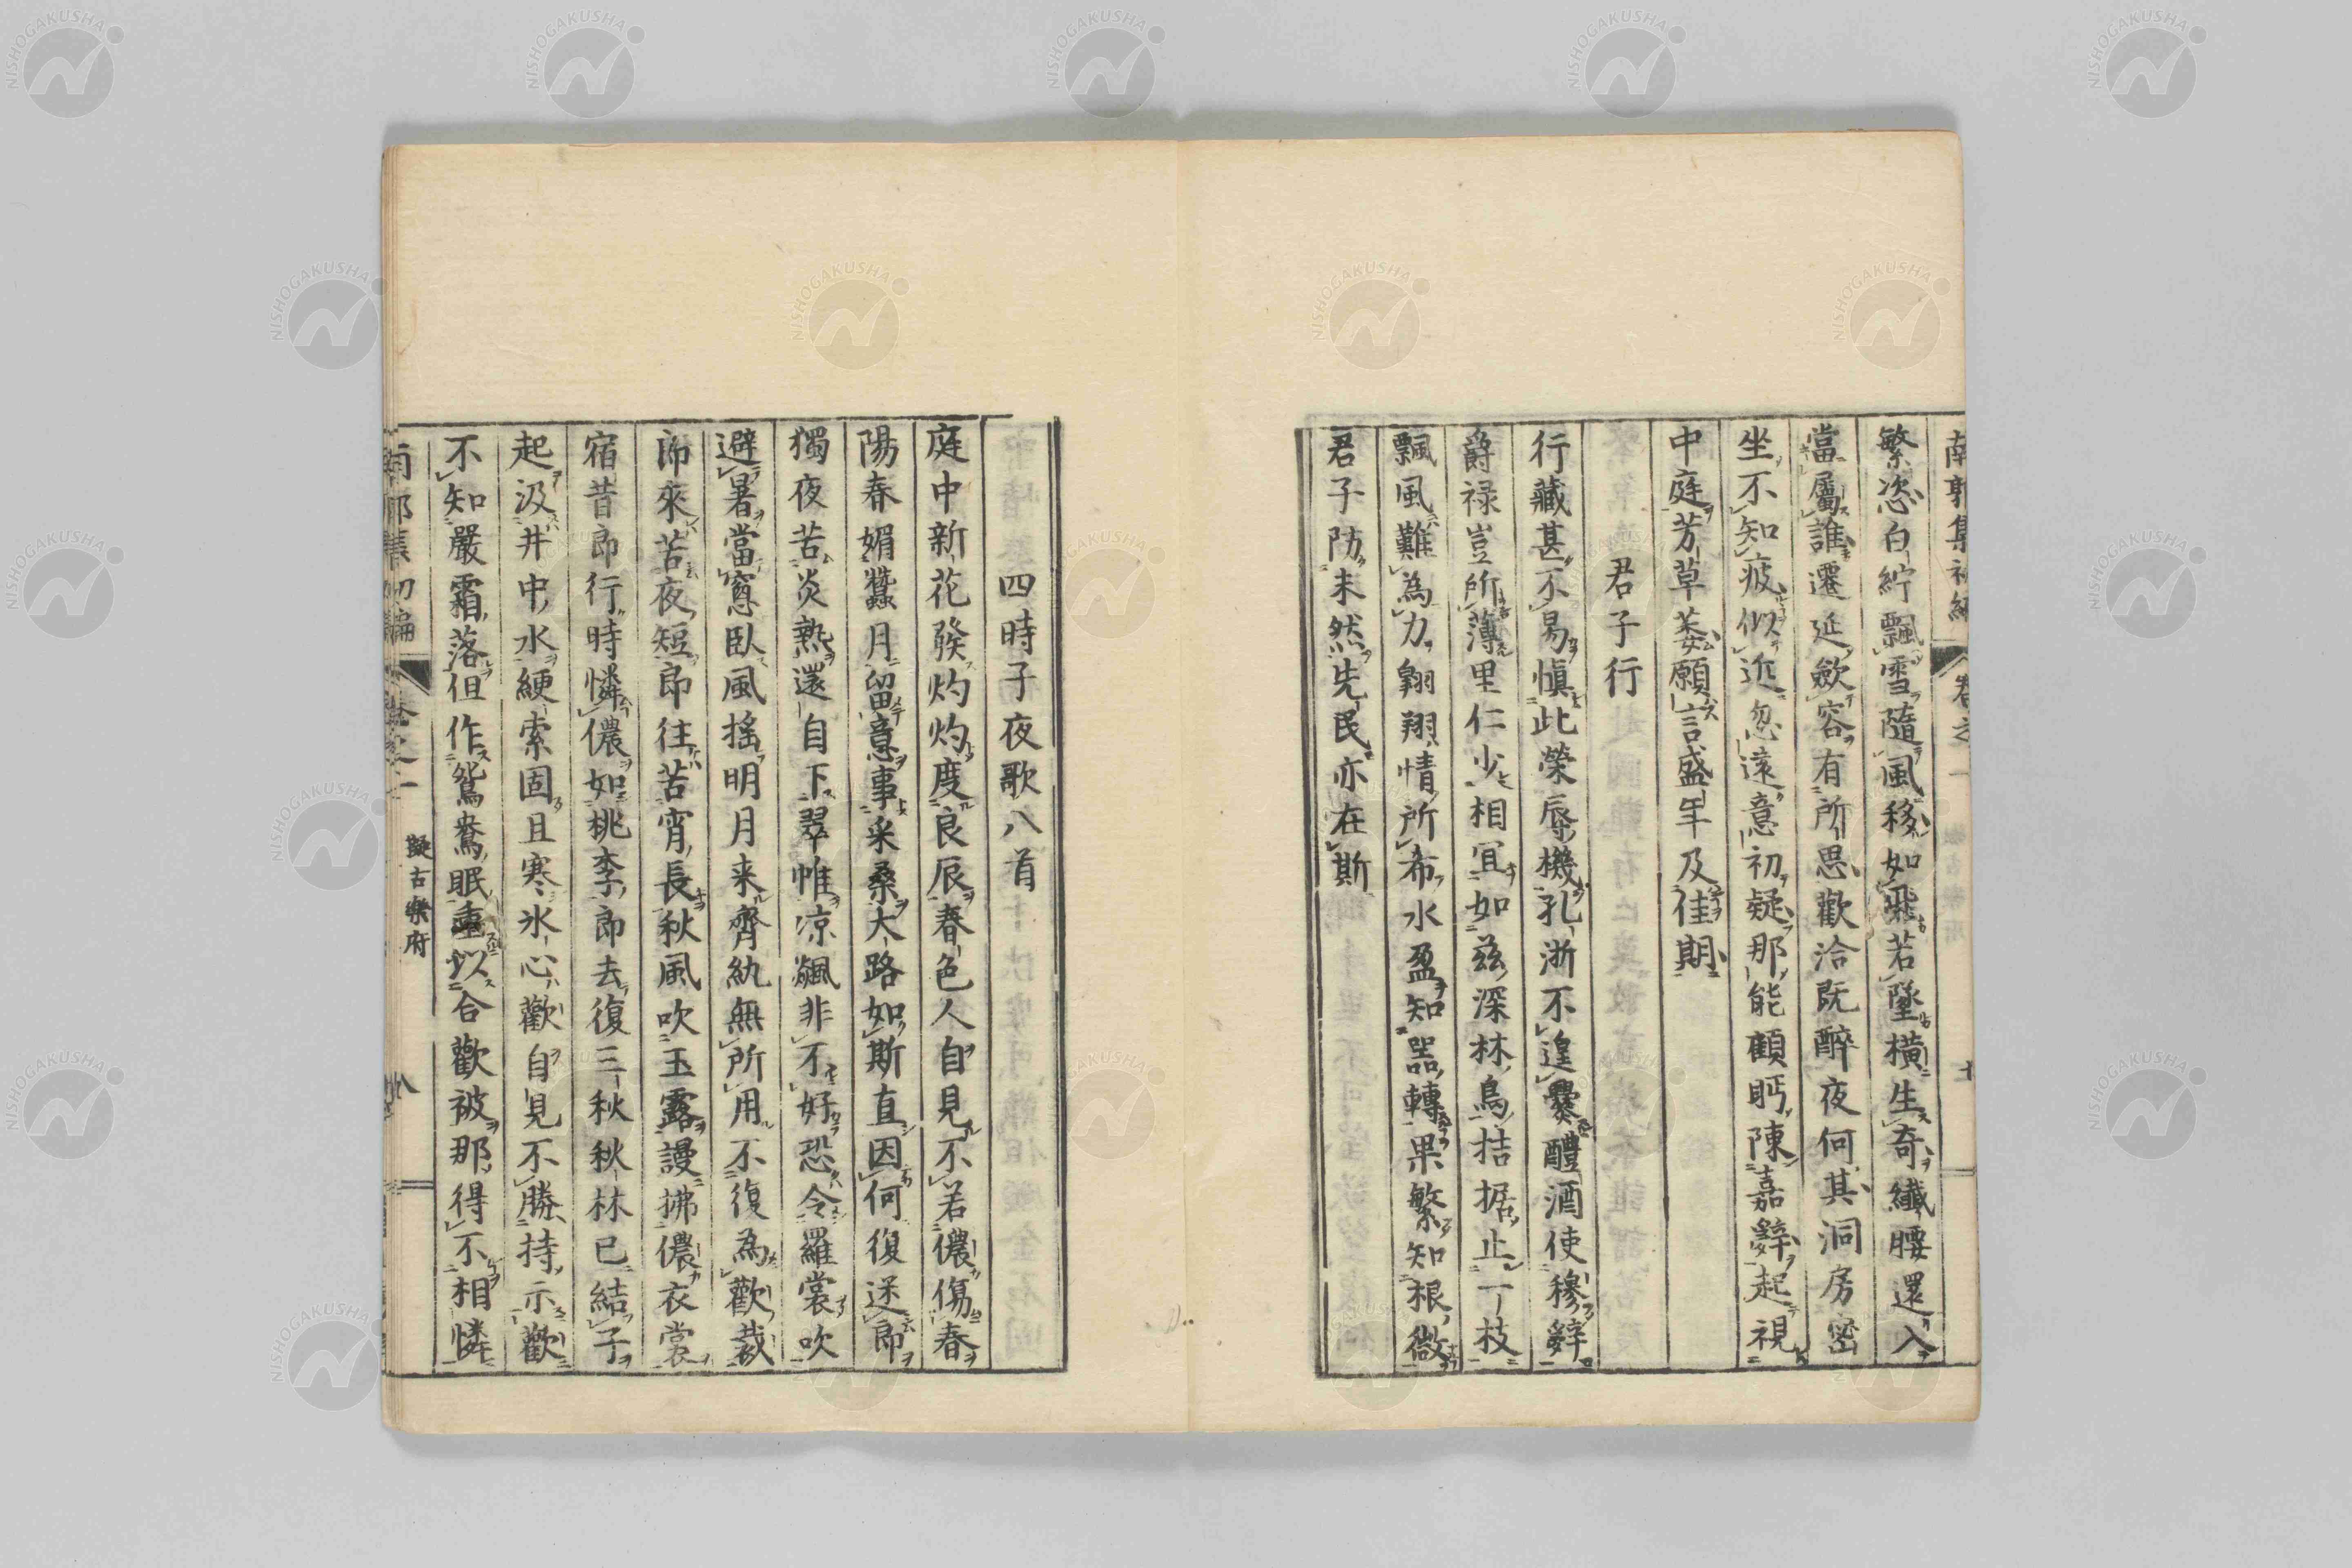 南郭集初編
卷之一
繁恣白紵飄雪隨風移如飛若墜橫生奇纖腰還入
當屬誰遷延斂容有所思歡洽既醉夜何其洞房密
坐不知疲似近忽遠意初疑那能顧眄陳嘉辭起視
中庭芳草萎願言盛年及佳期
君子行
行藏甚不易愼此榮辱機孔淅不遑爨醴酒使穆辭
爵祿豈所薄里仁少相宜如茲深林鳥拮据止一枝
飄風難為力翱翔情所希水盈知器轉果繁知根微
君子防未然先民亦在斯
四時子夜歌八首
庭中新花發灼灼度良辰春色人自見不若儂傷春
陽春媚蠶月留意事采桑大路如斯直因何復迷郎
獨夜苦炎熱還自下翠帷涼飆非不好恐令羅裳吹
避暑當窓臥風搖明月来齊紈無所用不復為歡裁
郎來苦夜短郎往苦宵長秋風吹玉露謾拂儂衣裳
宿昔郎行時憐儂如桃李郎去復三秋秋林已結子
起汲井中水綆索固且寒氷心歡自見不勝持示歡
不知嚴霜落但作鴛鴦眠重以合歡被那得不相憐
南郭集初編
卷之一
擬古樂府
八